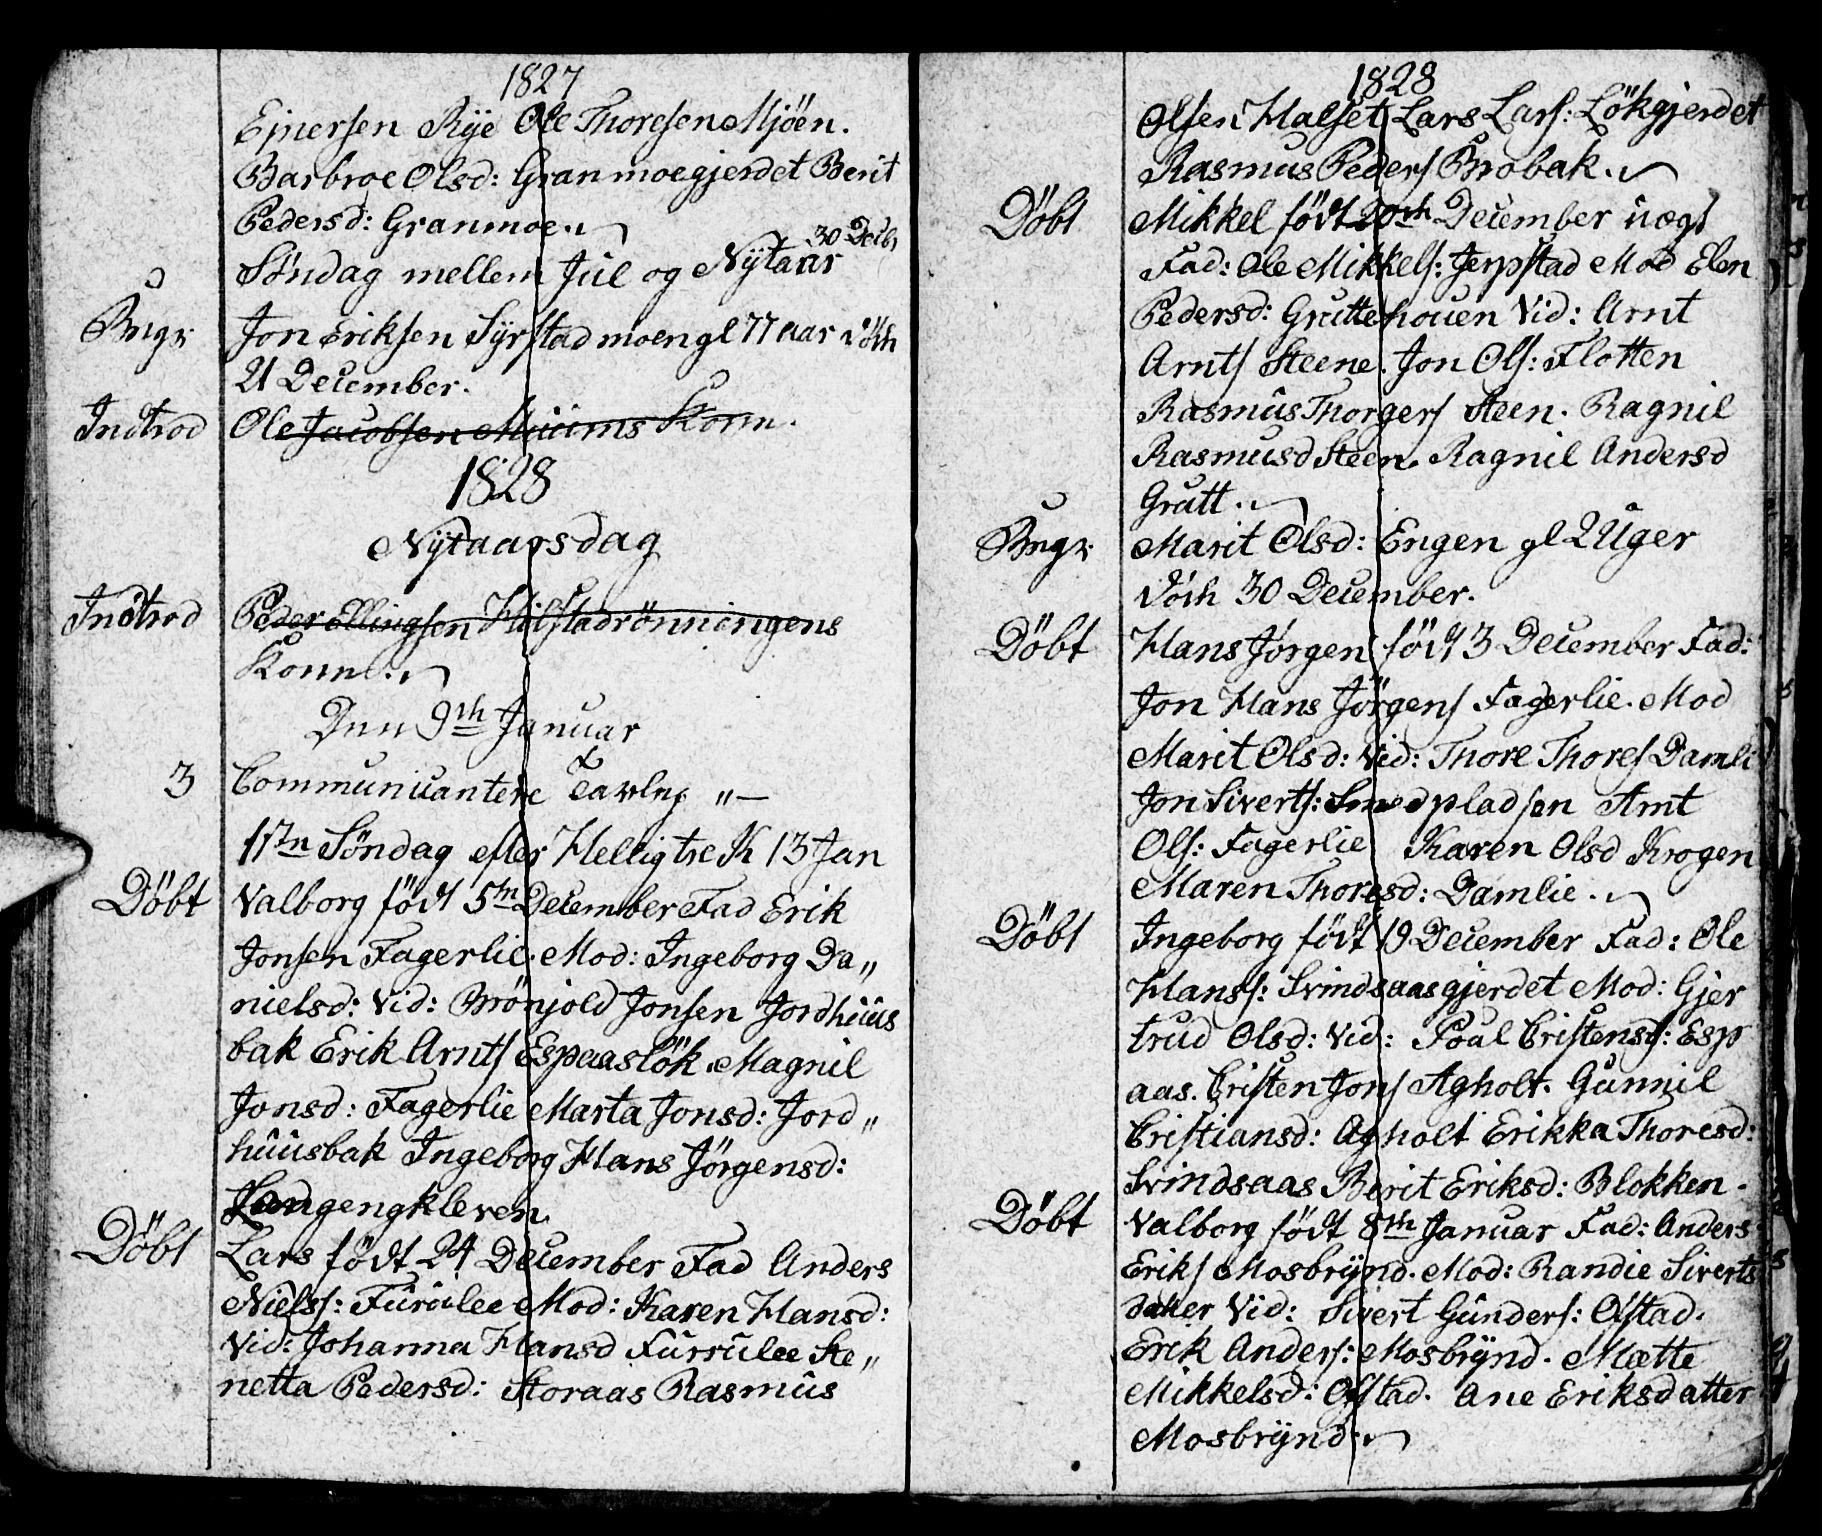 1827
Ejnersen Rye Ole Thoresen Mjöen.
Barbroe Olsd: Granmoegjerdet Berit
Pedersd: Granmoe.
30 Decbr
Söndag mellem Jul og Nytaar
Begr. Jon Eriksen Syrstadmoen gl 77 aar död
21 December.
Indtrod Ole Jacobsen Muums Kone.
1828
Nytaarsdag
Indtrod Peder Ellingsen Hilstadrönningens
Kone.
Den 9th Januar
3 Communicantere
1ste Söndag efter Hellig tre K 13 Jan
Döbt Valborg födt 5th December Fad Erik
Jonsen Fagerlie. Mod: Ingeborg Da„
nielsd: Vid: Brönjold Jonsen Jordhuus
bak Erik Arnts Espaaslök. Magnil
Jonsd: Fagerlie Marta Jonsd: Jord„
huusbak Ingeborg Hans Jörgensd:
Langengkleven.
Döbt Lars födt 24 December Fad Anders
Nielss: Furulee Mod: Karen Hansd:
Vid: Johanna Hansd Furrulee Ste„
netta Pedersd: Storaas Rasmus
1828
Olsen Halset Lars Lars: Lökgjerdet
Rasmus Peders Brobak.
Döbt Mikkel födt 20th December uægt
Fad: Ole Mikkels: Jerpstad Mod Elen
Pedersd: Gruttehouen Vid: Arnt
Arnts Steene. Jon Ols: Flotten
Rasmus Thorgers Steen. Ragnil
Rasmusd Steen. Ragnil Andersd
Grutt.
Begr. Marit Olsd: Engen gl 2 Uger
död 30 December.
Döbt Hans Jörgen födt 3 December Fad:
Jon Hans Jörgens Fagerlie. Mod
Marit Olsd: Vid: Thore Thores Damli
Jon Siverts: Smedpladsen Arnt
Ols: Fagerlie Karen Olsd Krogen
Maren Thoresd: Damlie.
Döbt Ingeborg födt 19 December Fad: Ole
Hanss: Svindsaasgjerdet Mod: Gjer
trud Olsd: Vid: Poal Cristens: Esp
aas. Cristen Jons Agholt. Gunnil
Cristiansd: Agholt Erikka Thoresd:
Svindsaas Berit Eriksd: Blokken.
Döbt Valborg födt 8th Januar Fad: Anders
Eriks Mosbrynd. Mod: Randie Siverts
datter Vid: Sivert Gunders: Ofstad.
Erik Anders: Mosbrynd. Mætte
Mikkelsd: Ofstad. Ane Eriksdatter
Mosbrynd.